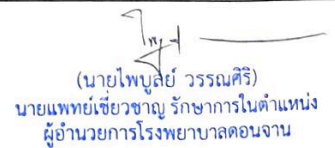 (นายไพบูลย์ วรรณศิริ)
นายแพทย์เชี่ยวชาญ รักษาการในตำแหน่ง
ผู้อำนวยการโรงพยาบาลดอนจาน